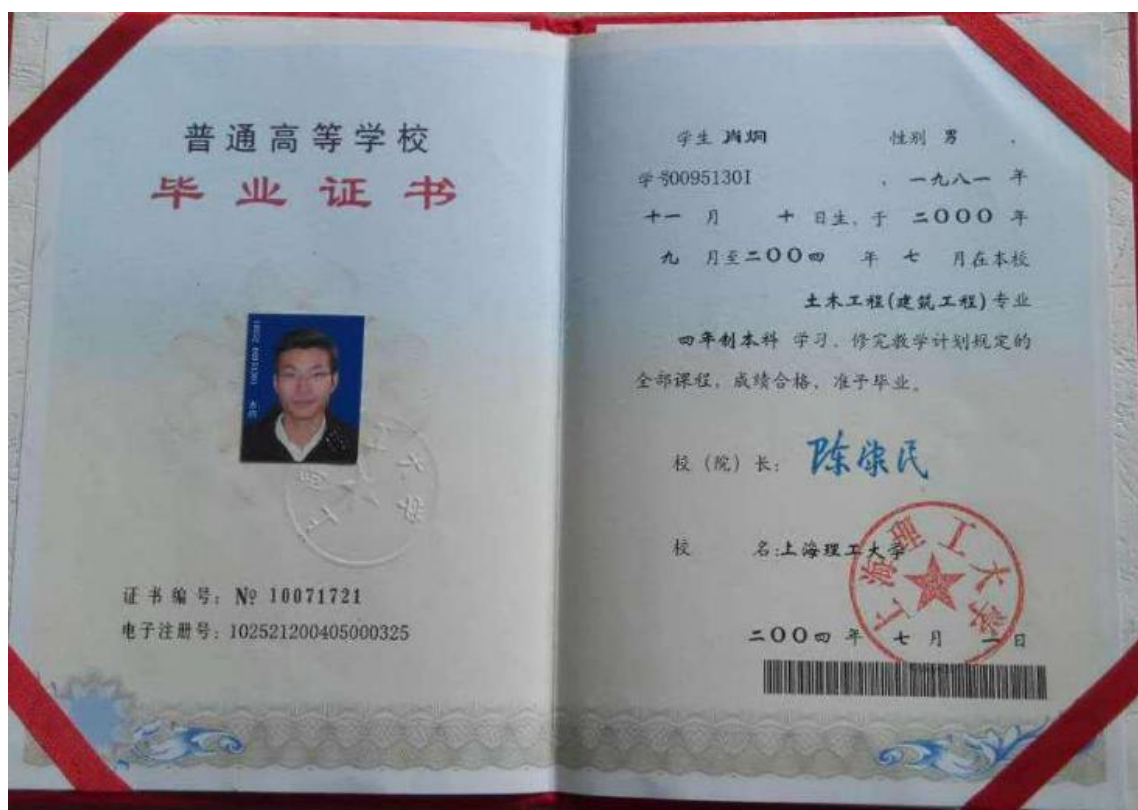 普通高等学校
毕业证书
证书编号：№ 10071721
电子注册号：102521200405000325
学生 肖炯 性别 男 ，
学号00951301 ，一九八一 年
十一 月 十 日生，于 二〇〇〇 年
九 月至二〇〇四 年 七 月在本校
土木工程(建筑工程)专业
四年制本科 学习，修完教学计划规定的
全部课程，成绩合格，准予毕业。
校（院）长：
校 名：上海理工大学
上海理工大学
二〇〇四 年 七 月 一 日